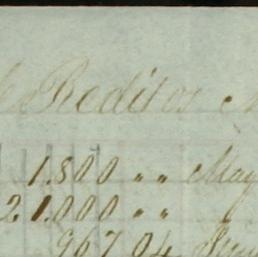 Reditos
1.800 " " May
21.000 " "
967 04